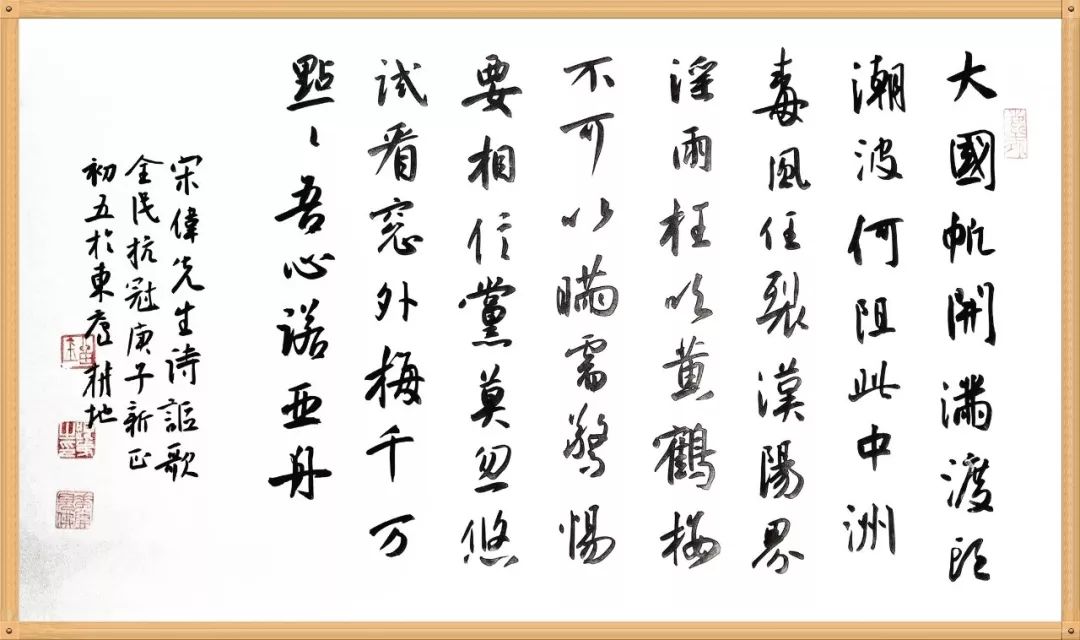 大國帆開滿渡頭
潮波何阻此中洲
毒風任裂漢陽界
淫雨枉吹黄鶴楼
不可以瞞需警惕
要相信黨莫忽悠
试看窓外梅千万
點〻吾心諾亞舟
宋偉先生詩謳歌
全民抗冠庚子新正
初五於東庐耕地